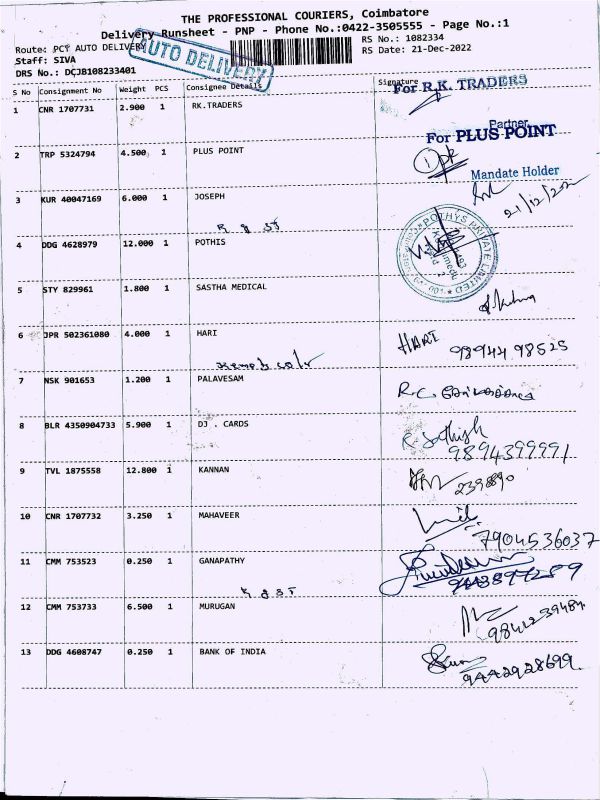 THE PROFESSIONAL COURIERS, Coimbatore
Delivery Runsheet - PNP - Phone No.:0422-3505555 - Page No.:1
Route: PCT AUTO DELIVERY
AUTO DELIVERY
RS No.: 1082334
Staff: SIVA
RS Date: 21-Dec-2022
DRS No.: DCJB108233401
S No Consignment No Weight PCS Consignee Details Signature
For R.K. TRADERS
1 CNR 1707731 2.900 1 RK.TRADERS
Partner
For PLUS POINT
2 TRP 5324794 4.500 1 PLUS POINT
Mandate Holder
3 KUR 40047169 6.000 1 JOSEPH
21/12/22
4 DDG 4628979 12.000 1 POTHIS
POTHYS PRIVATE LIMITED
5 STY 829961 1.800 1 SASTHA MEDICAL
6 JPR 502361080 4.000 1 HARI HARI
98944 98525
7 NSK 901653 1.200 1 PALAVESAM
R.C.
8 BLR 4350904733 5.900 1 DJ . CARDS R Sathish
9894399991
9 TVL 1875558 12.800 1 KANNAN
239890
10 CNR 1707732 3.250 1 MAHAVEER
7904536037
11 CMM 753523 0.250 1 GANAPATHY
12 CMM 753733 6.500 1 MURUGAN
13 DDG 4608747 0.250 1 BANK OF INDIA
9442928699